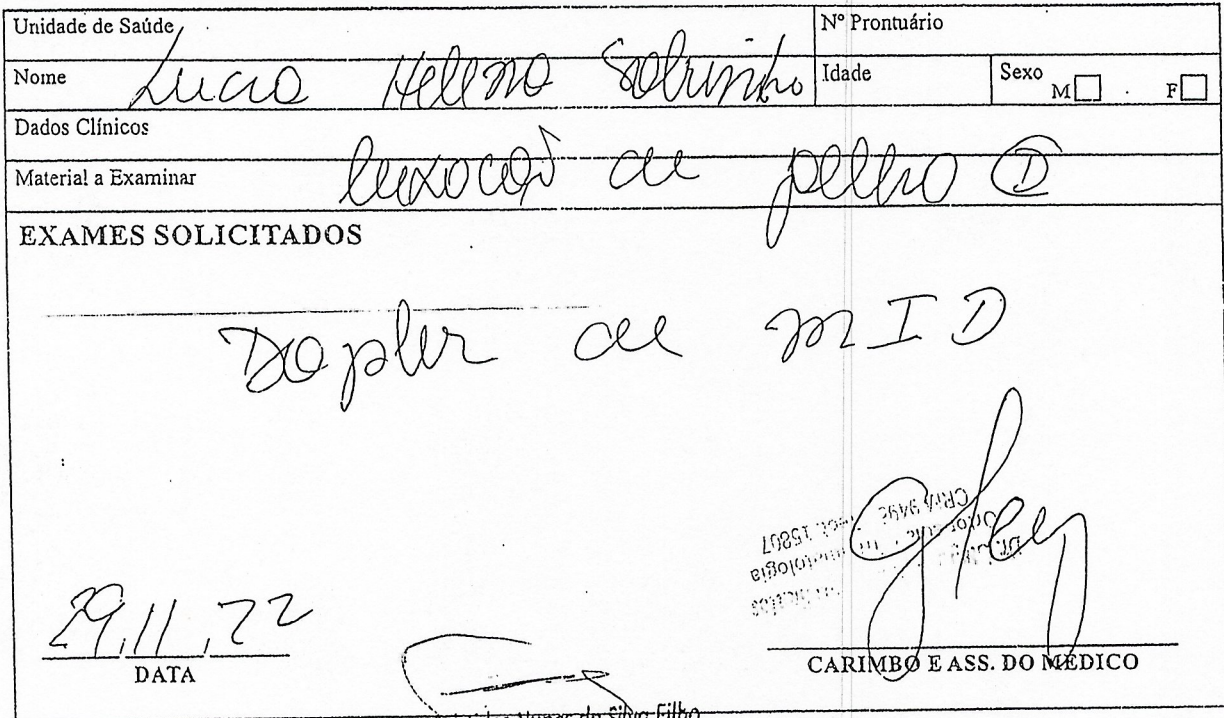 Unidade de Saúde
Nº Prontuário
Nome Lucia Helena Sobrinho
Idade
Sexo M F
Dados Clínicos
Material a Examinar luxação de joelho D
EXAMES SOLICITADOS
Dopler de MID
CRM 9492 15807
29.11.22
DATA
CARIMBO E ASS. DO MÉDICO
da Silva Filho